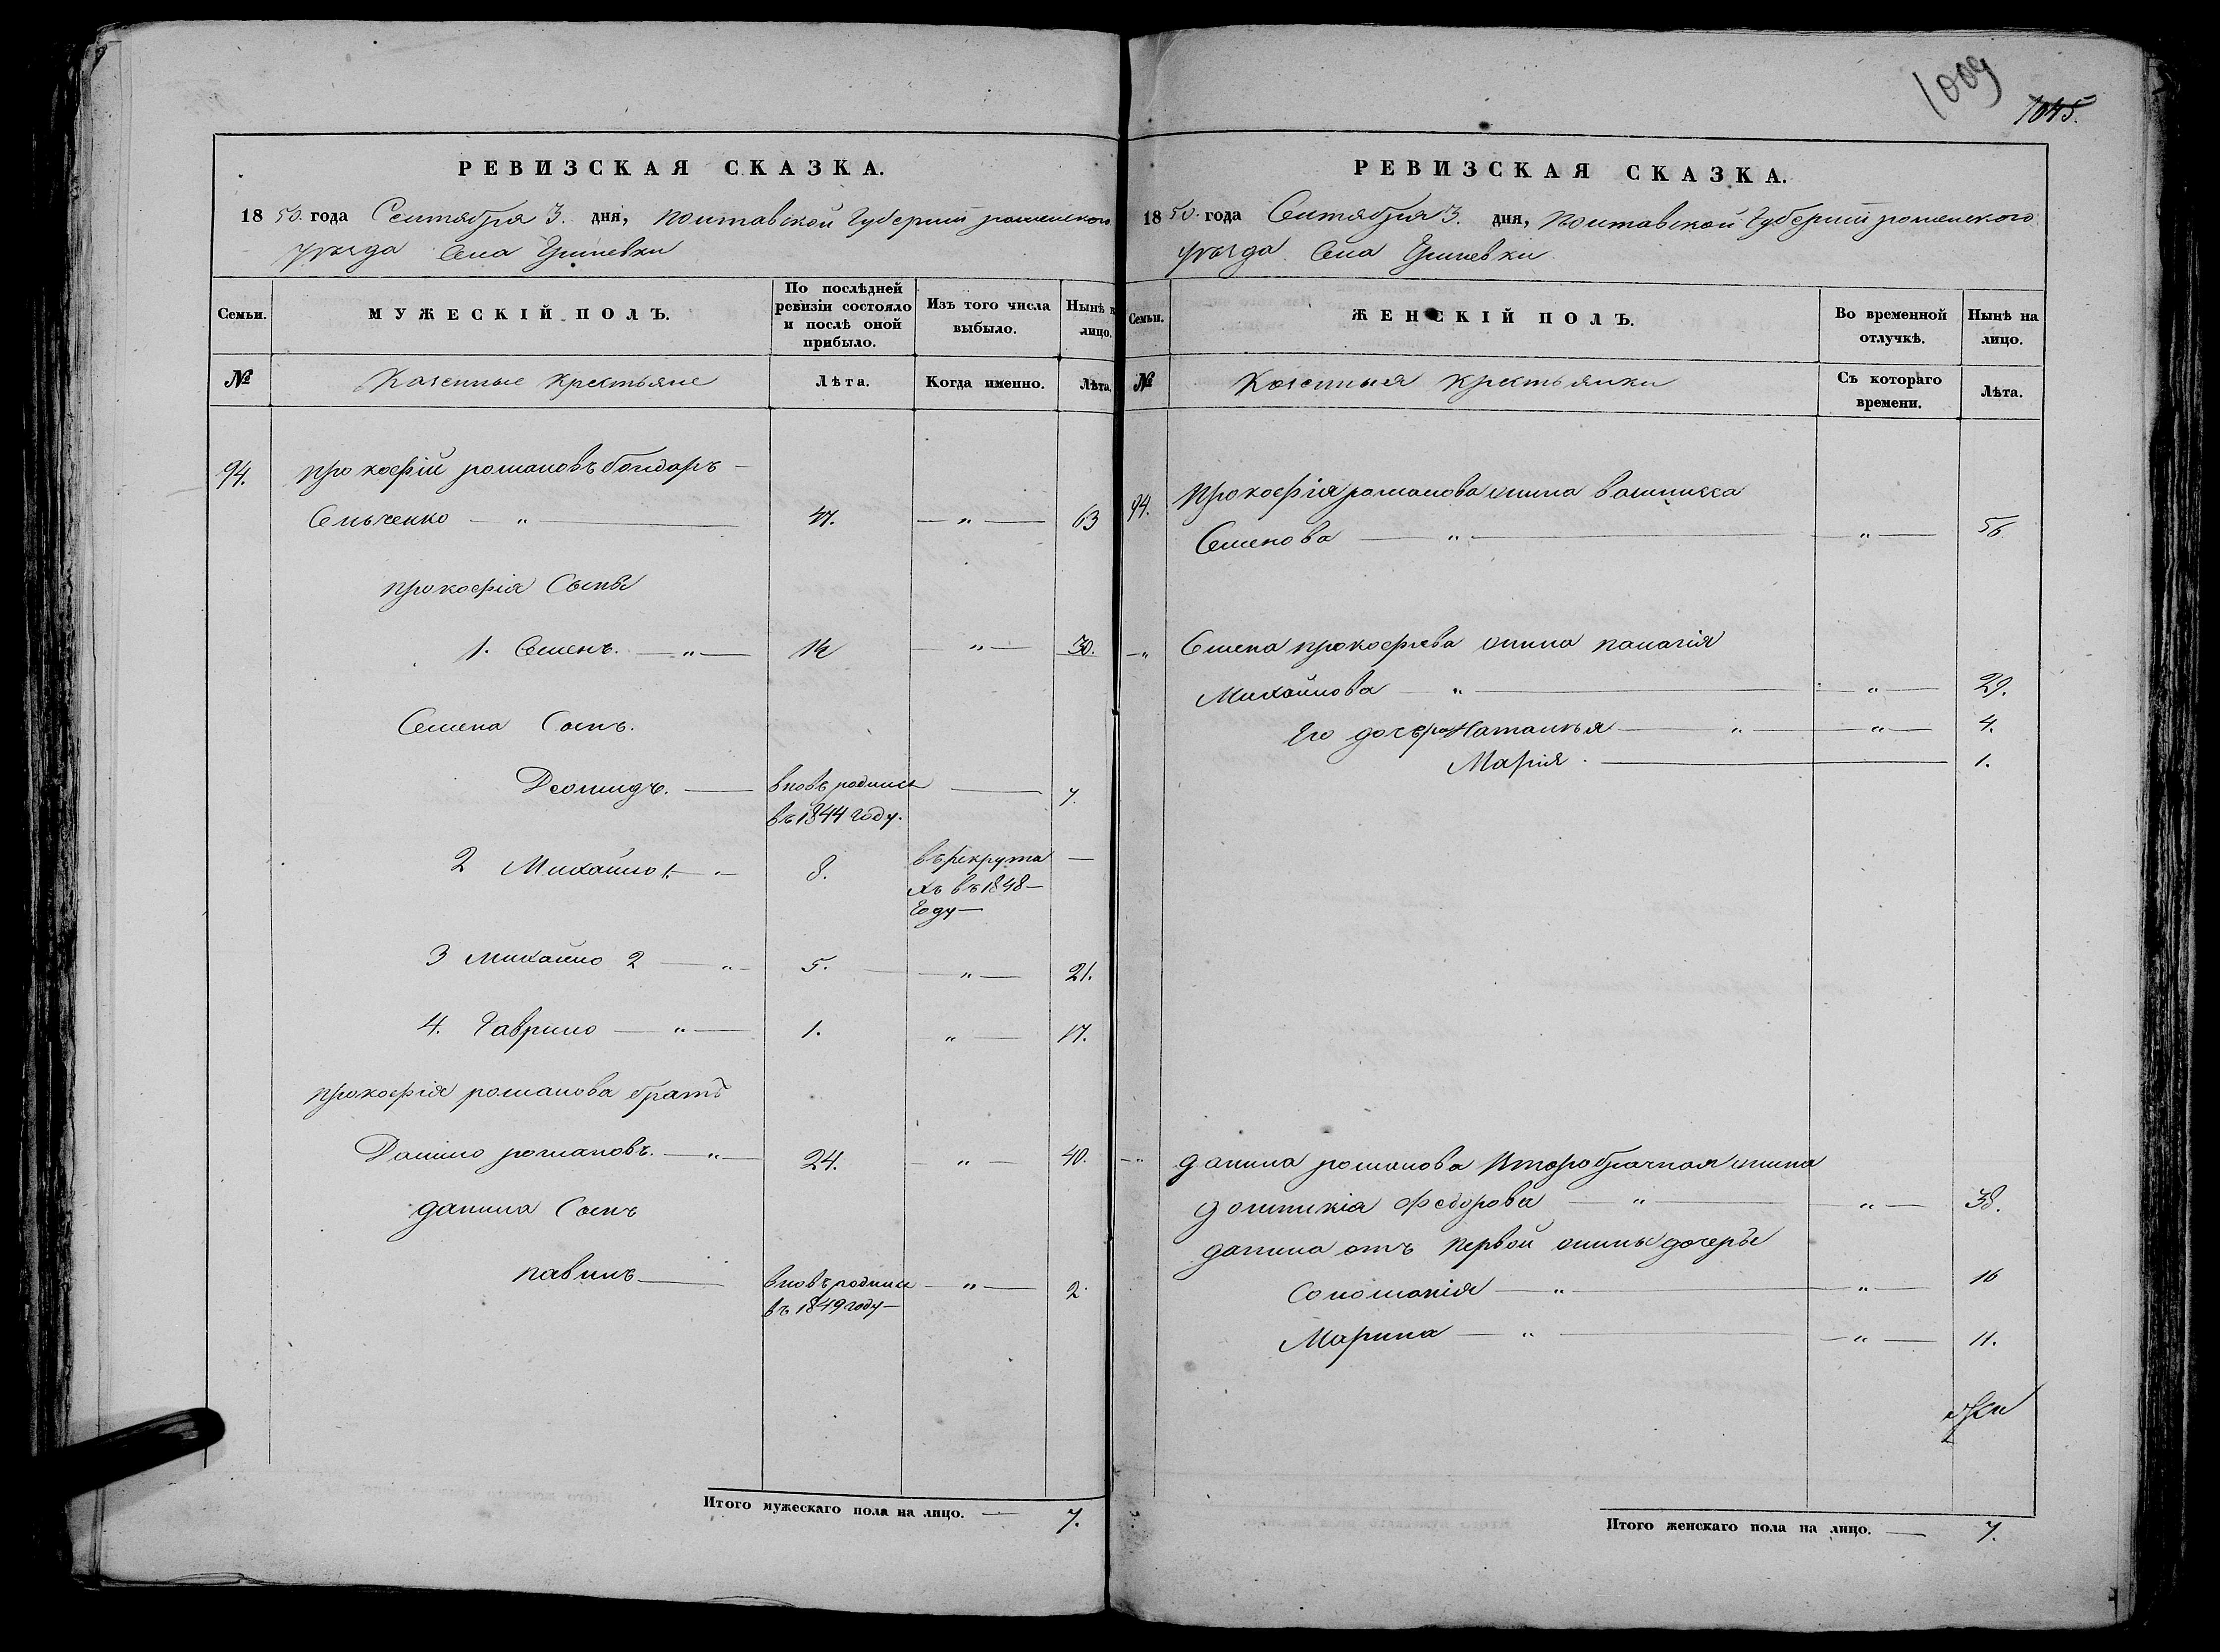 1009
1045.
РЕВИЗСКАЯ СКАЗКА.
1850. года Сентября 3. дня, полтавской Губерніи роменского
уезда Села
Семьи.
МУЖЕСКІЙ ПОЛЪ.
По послѣдней ревизіи состояло и послѣ оной прибыло.
Изъ того числа выбыло.
Нынѣ н лицо.
№
Казенные Крестьяне
Лѣта.
Когда именно.
Лѣта.
94. прокофій романовъ бондарь —
Сельченко — „ — 47. — „ — 63
прокофія Сыны
1. Семенъ. — „ — 14 — „ — 30.
Семена Сынъ.
Леонидъ. — вновь родился — 7.
въ 1844 году.
2 Михайло 1. — „ — 8. въ рекрута —
хъ въ 1848 —
Году —
3 Михайло 2 — „ — 5. — „ — 21.
4. Гаврило — „ — 1. „ — 17.
прокофія романова братъ
Данило романовъ. — „ — 24. — „ — 40.
данила Сынъ
павилъ — вновь родился — „ — 2.
въ 1849 году —
Итого мужескаго пола на лицо. — 7.
РЕВИЗСКАЯ СКАЗКА.
1850. года Сентября 3. дня, полтавской Губерніи роменского
уезда Села
Семьи.
ЖЕНСКІЙ ПОЛЪ.
Во временной отлучкѣ.
Нынѣ на лицо.
№
Казенныя Крестьянки
Съ котораго времени.
Лѣта.
94. прокофія романова жина василиса
Семенова — „ — „ — 56
— „ Семена прокофіева жина палагія
Михайлова — „ — „ — 29.
Его дочери Наталья — „ — „ — 4.
Марія. — 1.
— „ данила романова второбрачная жина
домникія Федорова — „ — „ — 38.
данила отъ первой жины дочеры
Соломанія — „ — „ — 16
Марина — „ — „ — 11.
Итого женскаго пола на лицо. — 7.